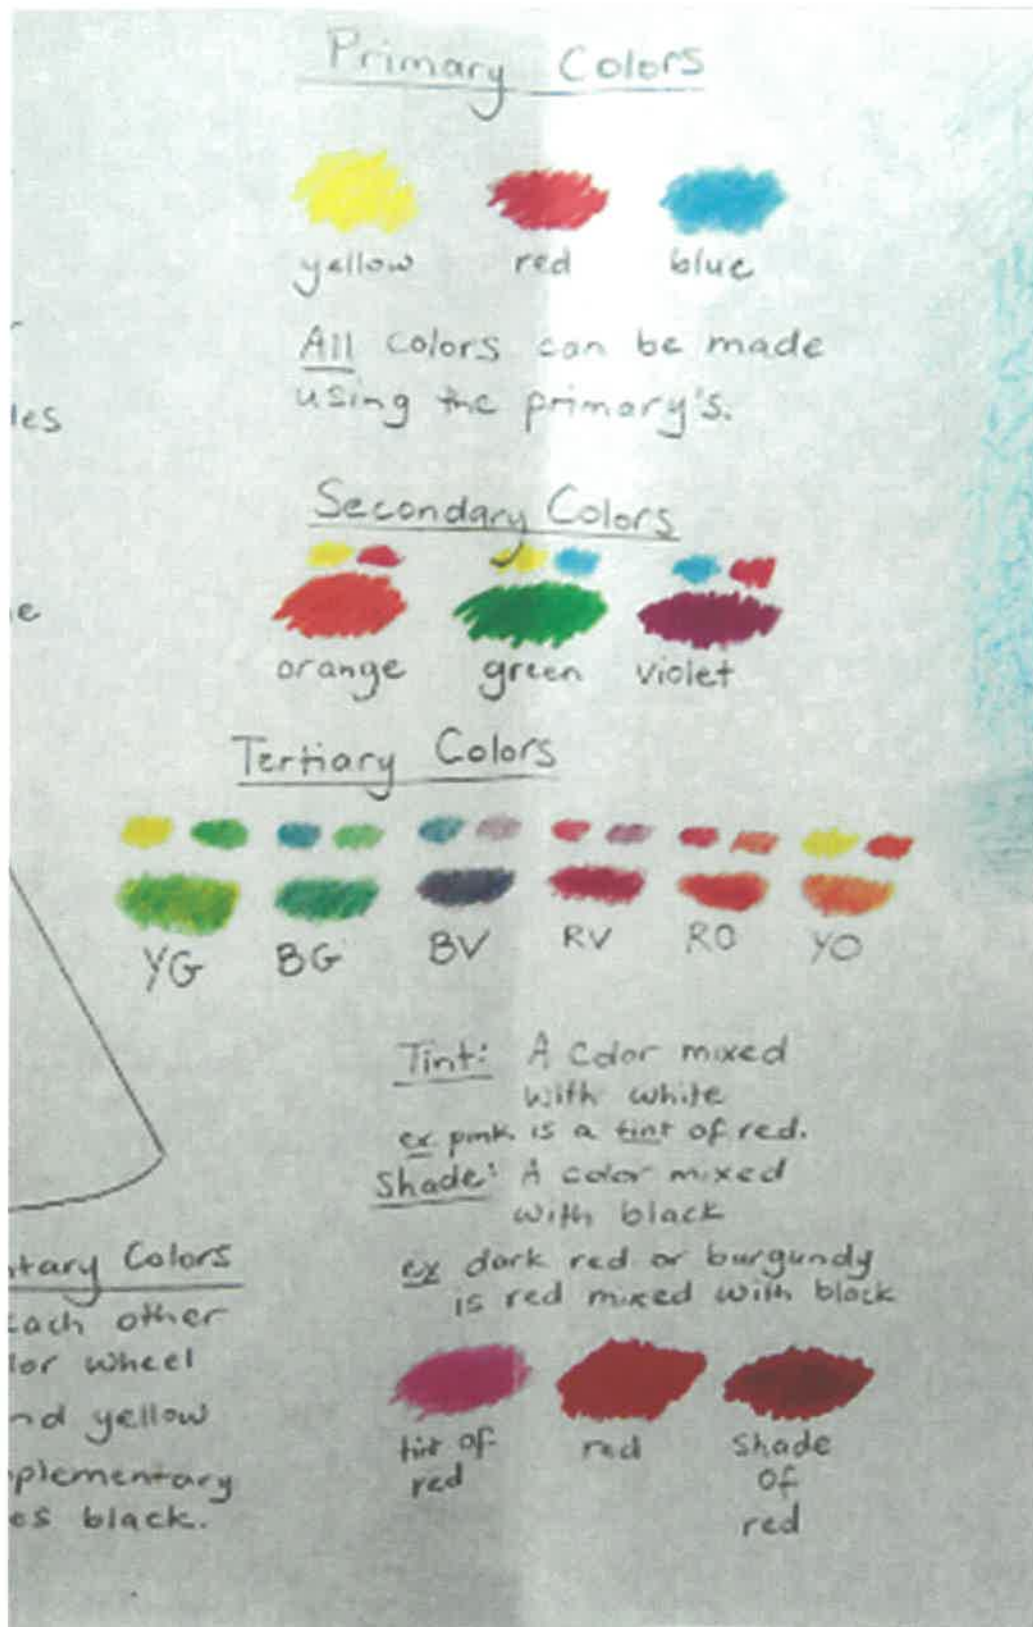 Primary Colors
yellow red blue
All colors can be made
using the primary's.
les
Secondary Colors
e
orange green violet
Tertiary Colors
YG BG BV RV RO YO
Tint: A Color mixed
with white
ex pink is a tint of red.
Shade: A color mixed
with black
ex dark red or burgundy
is red mixed with black
tint of
red
red
Shade
of
red
tary Colors
each other
lor wheel
nd yellow
plementary
es black.